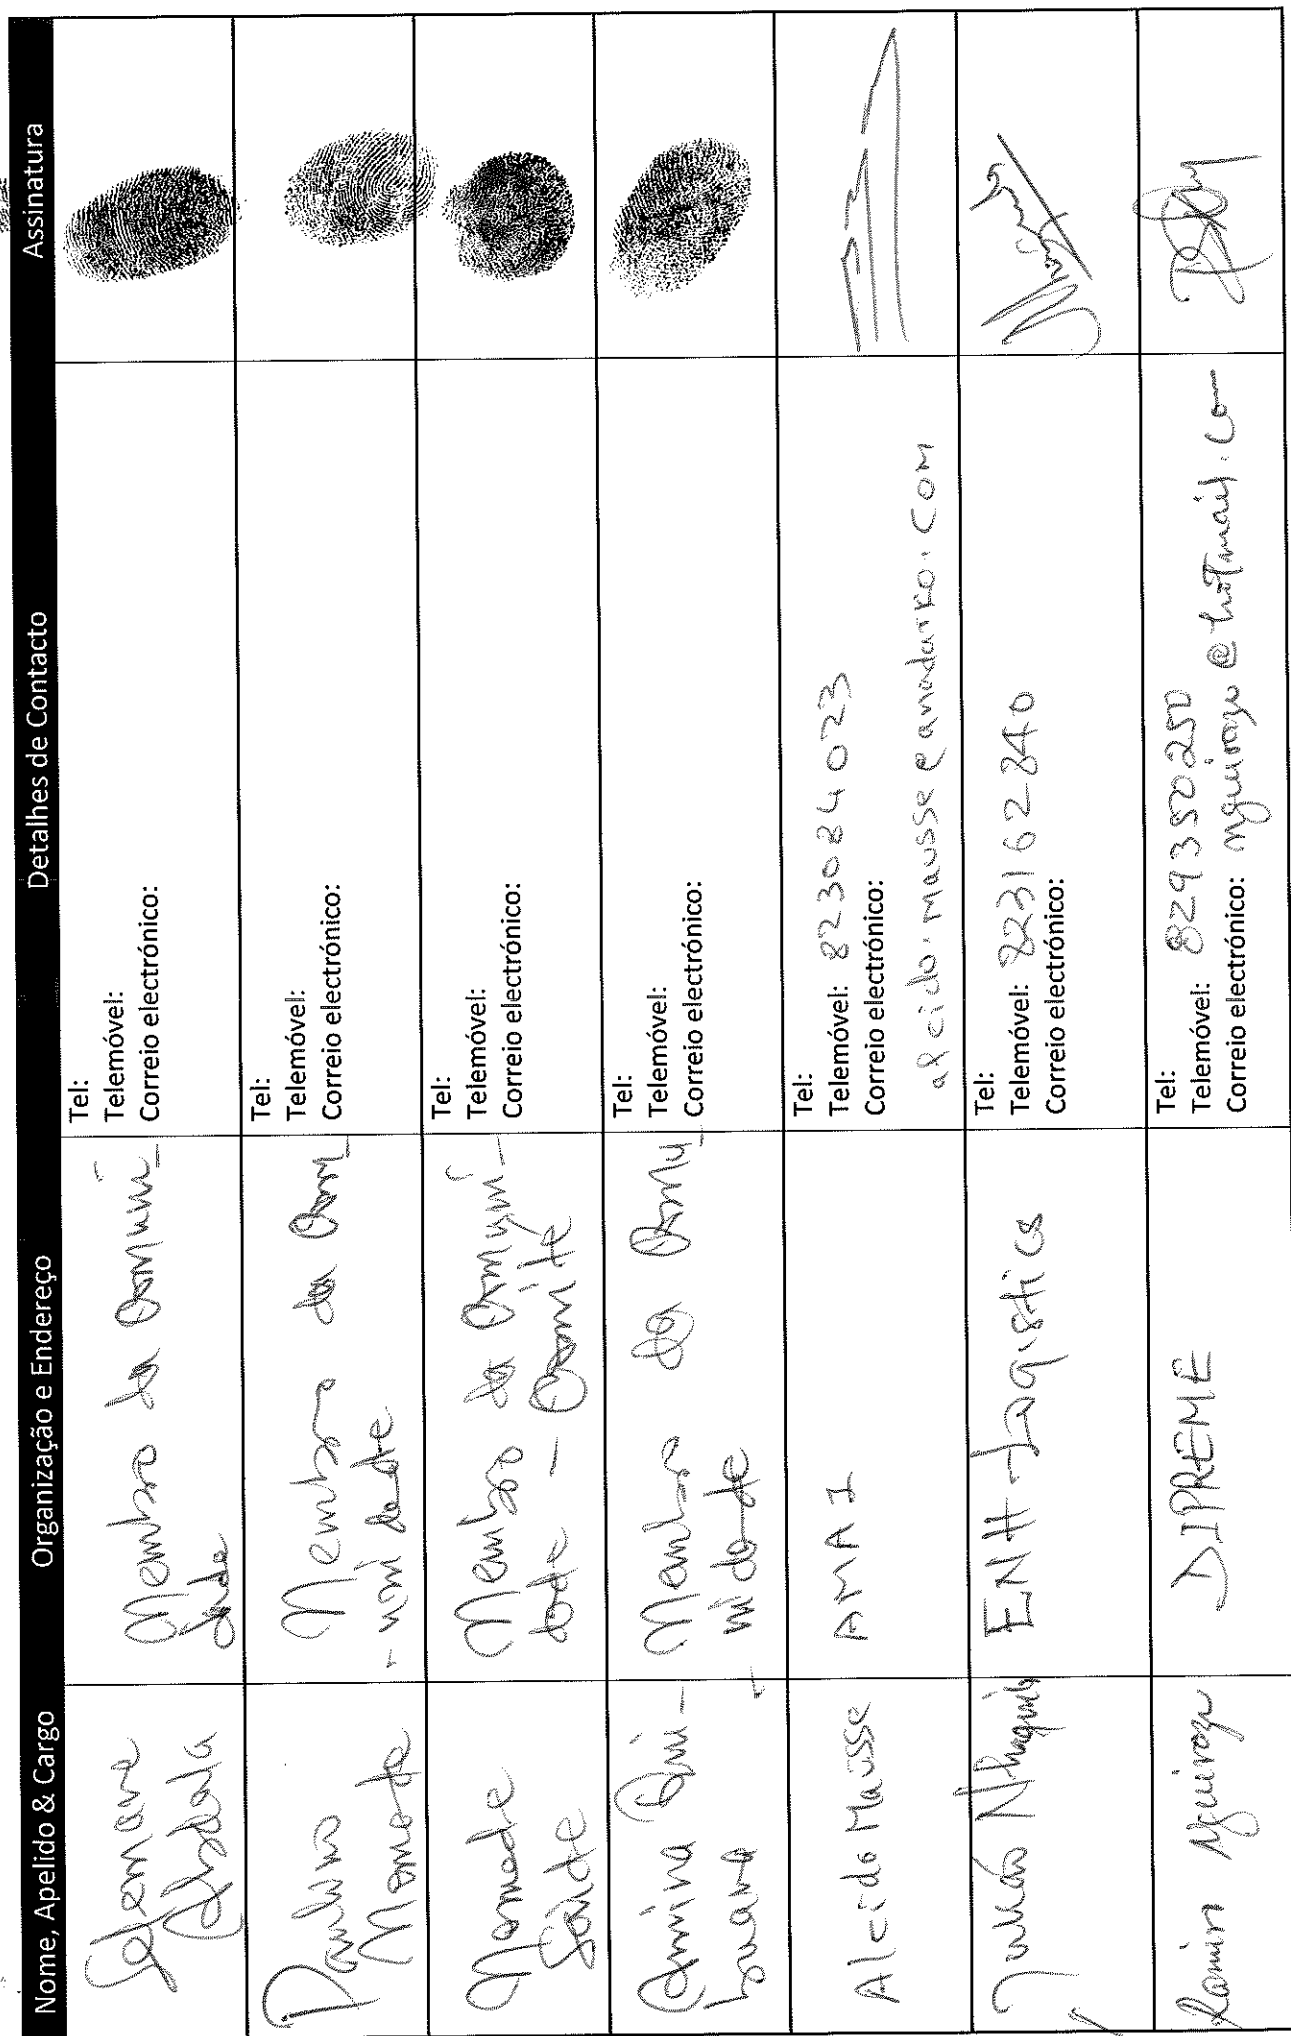 Nome, Apelido & Cargo Organização e Endereço Detalhes de Contacto Assinatura
Abdala
Membro da Comuni_
dade
Tel:
Telemóvel:
Correio electrónico:
Paulino
Momade
Membro da Com_
- uni dade
Tel:
Telemóvel:
Correio electrónico:
Momade
Saide
Membro da Comuni-
dade - Comite
Tel:
Telemóvel:
Correio electrónico:
Amina
Membro da Comu_
nidade
Tel:
Telemóvel:
Correio electrónico:
Alcido Mausse
AMA 1
Tel:
Telemóvel: 823084023
Correio electrónico:
alcido.mausse@anadarko.com
Julião
ENH-Logistica
Tel:
Telemóvel: 823162840
Correio electrónico:
Ramim Nguiraze
DIPREME
Tel:
Telemóvel: 829350250
Correio electrónico: nguiraze@hotmail.com